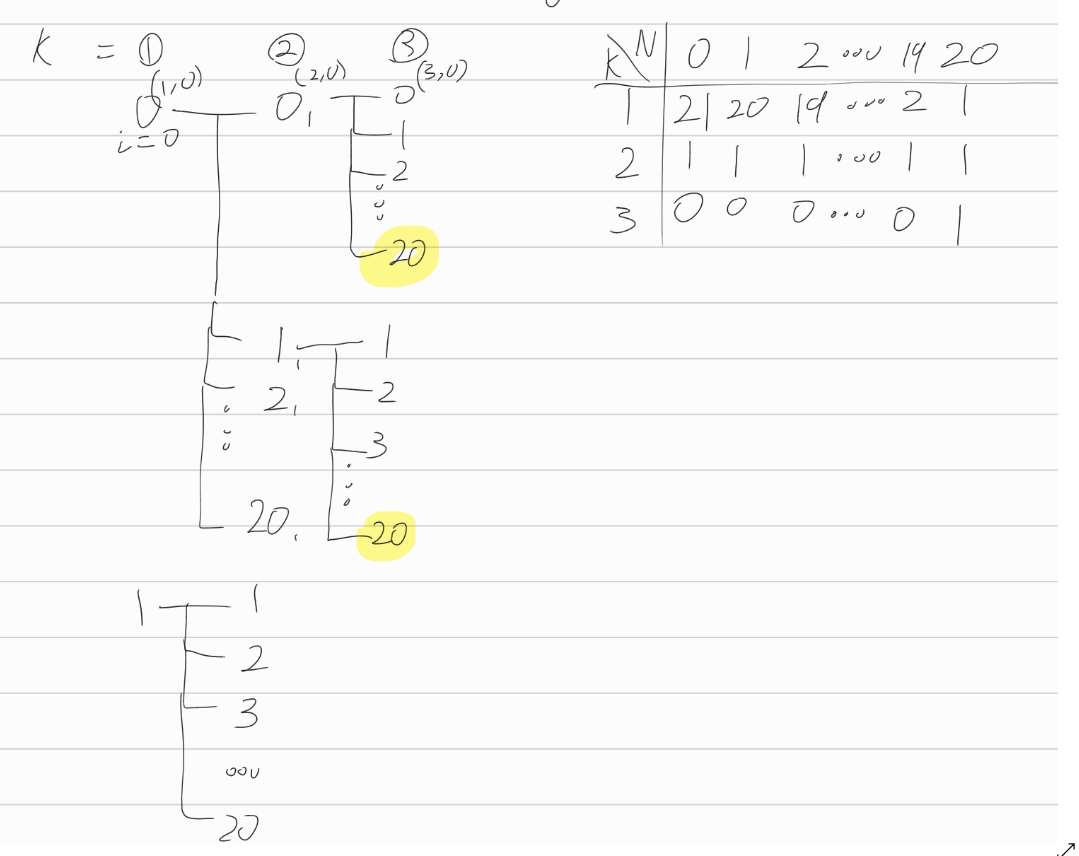 K = ① ② ③
(1,0) (2,0) (3,0)
0 0, 0
i=0
1
2
20
1, 1
2, 2
3
20, 20
1 1
2
3
20
K\N 0 1 2 ... 19 20
1 21 20 19 ... 2 1
2 1 1 1 ... 1 1
3 0 0 0 ... 0 1